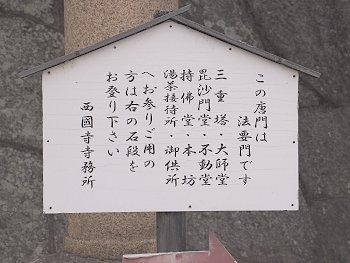 この唐門は
法要門です
三重塔・大師堂
毘沙門堂・不動堂
持佛堂・本坊
湯茶接待所・御供所
へお参りご用の
方は右の石段を
お登り下さい
西國寺寺務所